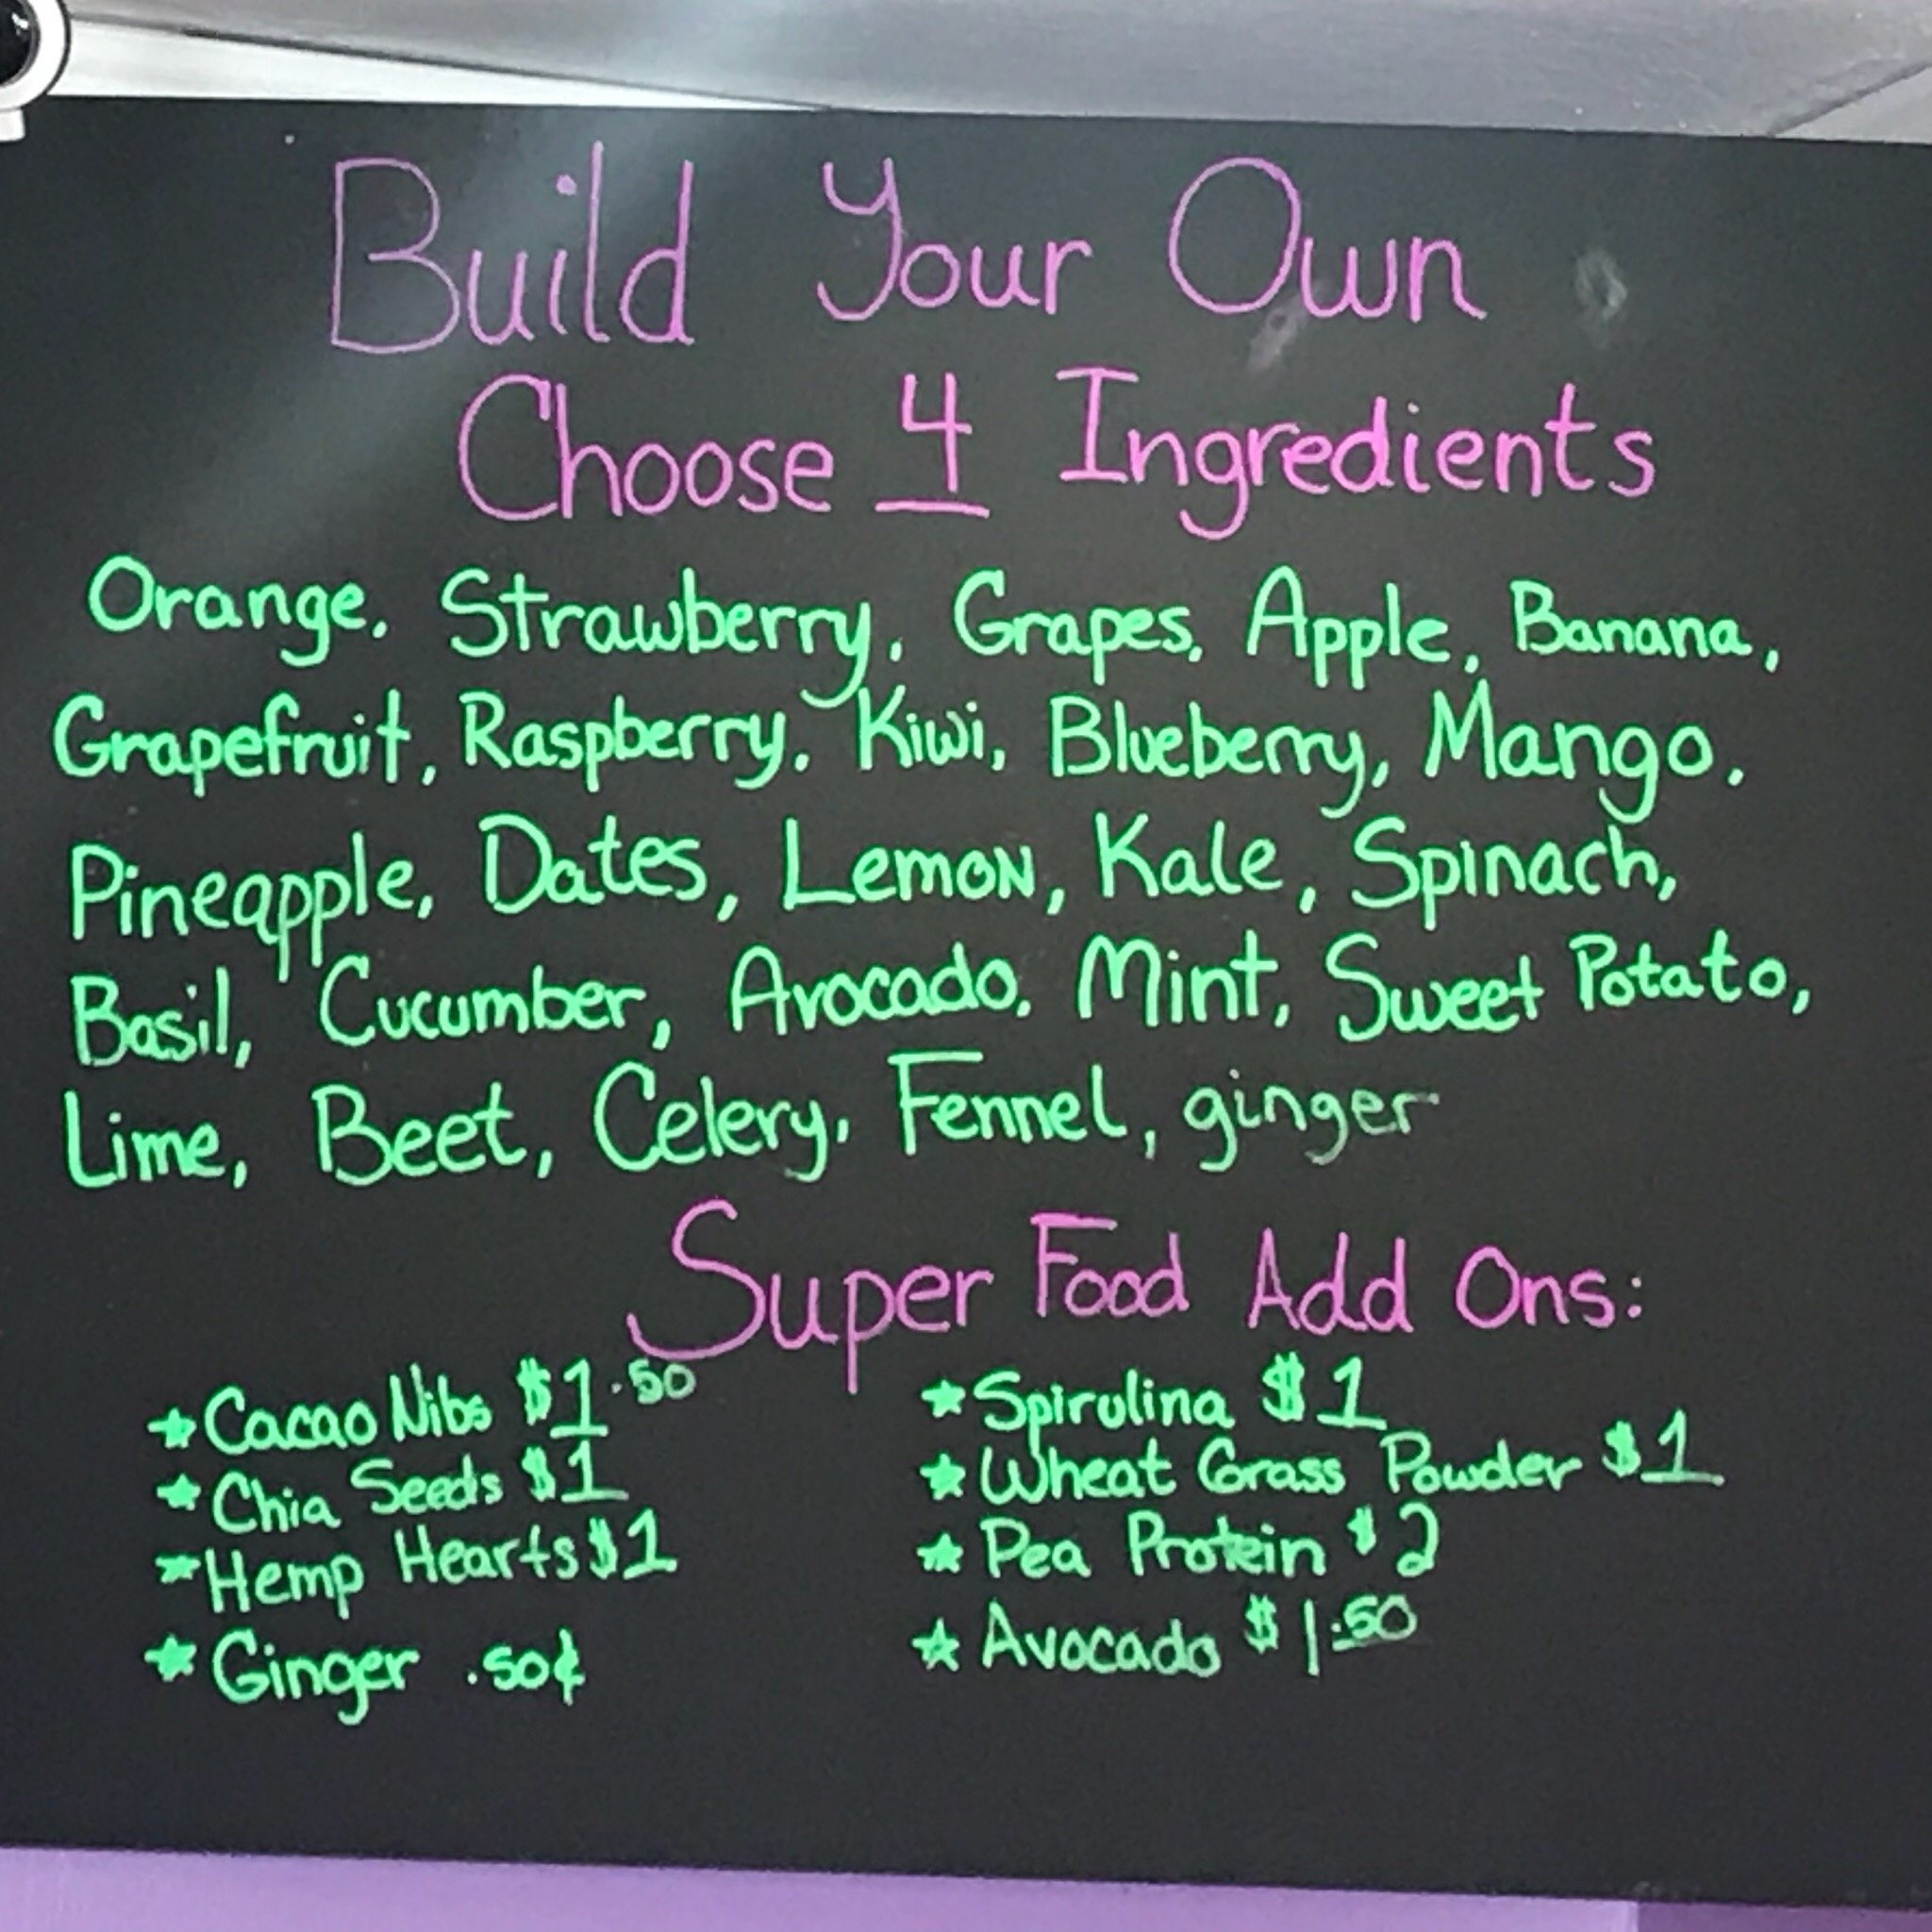 Build Your Own
Choose 4 Ingredients
Orange, Strawberry, Grapes, Apple, Banana,
Grapefruit, Raspberry, Kiwi, Blueberry, Mango,
Pineapple, Dates, Lemon, Kale, Spinach,
Basil, Cucumber, Avocado, Mint, Sweet Potato,
Lime, Beet, Celery, Fennel, ginger
Super Food Add Ons:
★ Cacao Nibs $1.50
★ Chia Seeds $1
★ Hemp Hearts $1
★ Ginger .50¢
★ Spirulina $1
★ Wheat Grass Powder $1
★ Pea Protein $2
★ Avocado $1.50